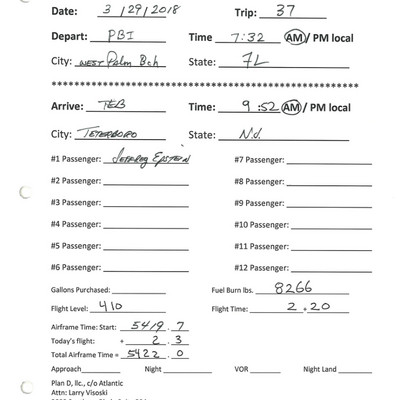 Date: 3/29/2018 Trip: 37
Depart: PBI Time 7:32 AM / PM local
City: WEST Palm Bch State: FL
************************************************
Arrive: TEB Time: 9:52 AM / PM local
City: TETERBORO State: N.J.
#1 Passenger: Jeffrey Epstein #7 Passenger:
#2 Passenger: #8 Passenger:
#3 Passenger: #9 Passenger:
#4 Passenger: #10 Passenger:
#5 Passenger: #11 Passenger:
#6 Passenger: #12 Passenger:
Gallons Purchased: Fuel Burn lbs. 8266
Flight Level: 410 Flight Time: 2.20
Airframe Time: Start: 5419.7
Today's flight: + 2.3
Total Airframe Time = 5422.0
Approach Night VOR Night Land
Plan D, llc., c/o Atlantic
Attn: Larry Visoski